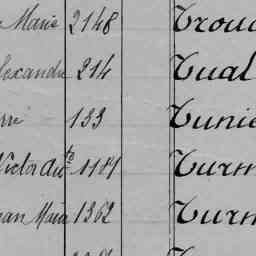 Marie 2148 Trouc
lexandre 214 Tual
rre 133 Tunie
Victor Aug.te 1184 Turm
ean Marie 1362 Turm